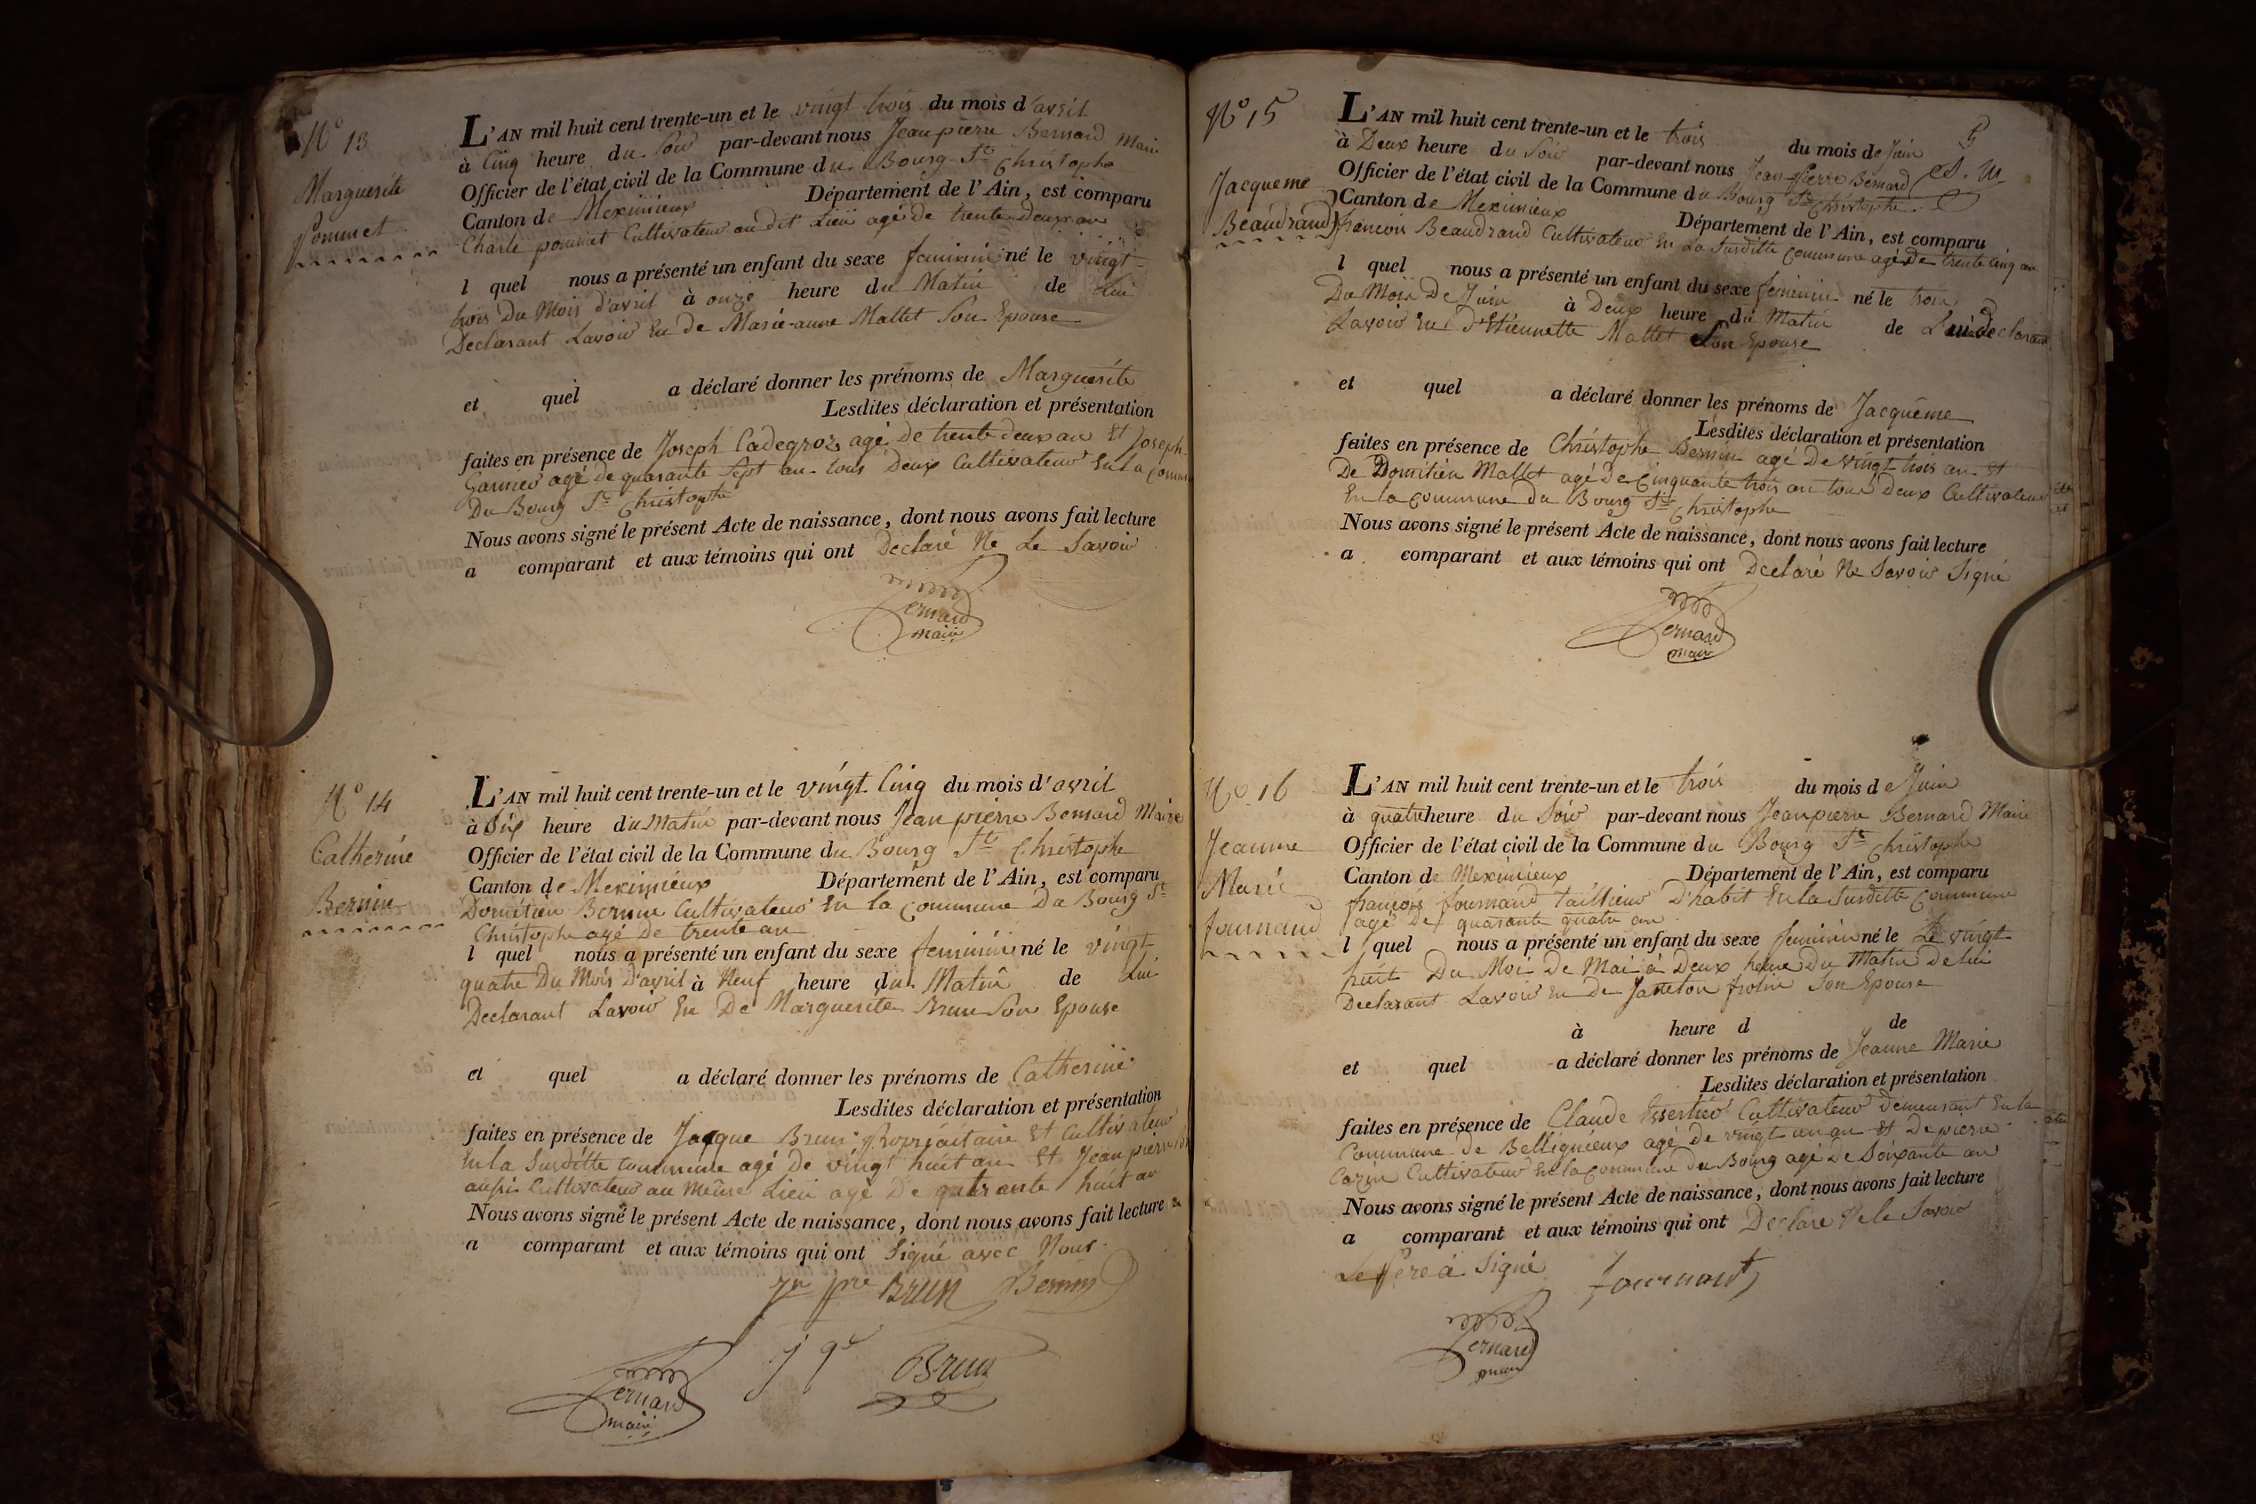 N° 13
Marguerite
Pommet
L'AN mil huit cent trente-un et le vingt trois du mois d'avril
à Cinq heure du Soir par-devant nous Jeanpierre Bernard Maire
Officier de l'état civil de la Commune du Bourg St Christophe
Canton de Meximieux Département de l'Ain, est comparu
Charle pommet Cultivateur au dit Lieu agé de trente deux an
l quel nous a présenté un enfant du sexe feminin né le vingt
trois Du Mois d'avril à onze heure du Matin de Lui
Declarant Lavoir Eu de Marie-anne Mallet Son Epouse
et quel a déclaré donner les prénoms de Marguerite
Lesdites déclaration et présentation
faites en présence de Joseph Cadegroz agé De trente deux an Et Joseph
Garnier agé de quarante Sept an tous Deux Cultivateur En la Commune
Du Bourg St Christophe
Nous avons signé le présent Acte de naissance, dont nous avons fait lecture
a comparant et aux témoins qui ont Declaré Ne Le Savoir
Bernard
maire
N° 14
Catherine
Bernin
L'AN mil huit cent trente-un et le vingt Cinq du mois d'avril
à Six heure du Matin par-devant nous Jean pierre Bernard Maire
Officier de l'état civil de la Commune du Bourg St Christophe
Canton de Meximieux Département de l'Ain, est comparu
Domitien Bernin Cultivateur En la Commune Du Bourg St
Christophe agé De trente an
l quel nous a présenté un enfant du sexe feminin né le vingt
quatre Du Mois D'avril à Neuf heure du Matin de Lui
Declarant Lavoir Eu De Marguerite Brun Son Epouse
et quel a déclaré donner les prénoms de Catherine
Lesdites déclaration et présentation
faites en présence de Jacque Brun Propriaitaire Et Cultivateur
En la Surditte Commune agé De vingt huit an Et Jean pierre
aussi Cultivateur au même Lieu agé De quarante huit an
Nous avons signé le présent Acte de naissance, dont nous avons fait lecture
a comparant et aux témoins qui ont Signé avec Nous
Jn pre BRUN Bernin
jqe Brun
Bernard
maire
N° 15
Jacqueme
Beaudrand
L'AN mil huit cent trente-un et le trois du mois de Juin
à Deux heure du Soir par-devant nous Jean pierre Bernard
Officier de l'état civil de la Commune du Bourg St Christophe
Canton de Meximieux Département de l'Ain, est comparu
francois Beaudrand Cultivateur En La Surditte Commune agé De trente Cinq an
l quel nous a présenté un enfant du sexe feminin né le trois
Du Mois De Juin à Deux heure du Matin de Lui Declarant
Lavoir Eu D'Etiennette Mallet Son Epouse
et quel a déclaré donner les prénoms de Jacqueme
Lesdites déclaration et présentation
faites en présence de Christophe Bernin agé De vingt trois an Et
De Domitien Mallet agé De Cinquante trois an tous Deux Cultivateur
En la Commune du Bourg St Christophe
Nous avons signé le présent Acte de naissance, dont nous avons fait lecture
a comparant et aux témoins qui ont Declaré Ne Savoir Signé
Bernard
maire
No 16
Jeanne
Marie
fournand
L'AN mil huit cent trente-un et le trois du mois de Juin
à quatre heure du Soir par-devant nous Jeanpierre Bernard Maire
Officier de l'état civil de la Commune du Bourg St Christophe
Canton de Meximieux Département de l'Ain, est comparu
françois fournand taillieur D'habit En la Surditte Commune
agé De quarante quatre an
l quel nous a présenté un enfant du sexe feminin né le Le vingt
huit Du Moi De Mai à Deux heure Du Matin De lui
Declarant Lavoir Eu de Janeton Son Epouse
à heure d de
et quel a déclaré donner les prénoms de Jeanne Marie
Lesdites déclaration et présentation
faites en présence de Claude Essertier Cultivateur Demeurant En la
Commune de Belligneux agé De vingt un an Et De pierre
Carin Cultivateur En la Commune du Bourg agé De Soixante an
Nous avons signé le présent Acte de naissance, dont nous avons fait lecture
a comparant et aux témoins qui ont Declaré Ne le Savoir
Le Pere à Signé
fournand
Bernard
maire